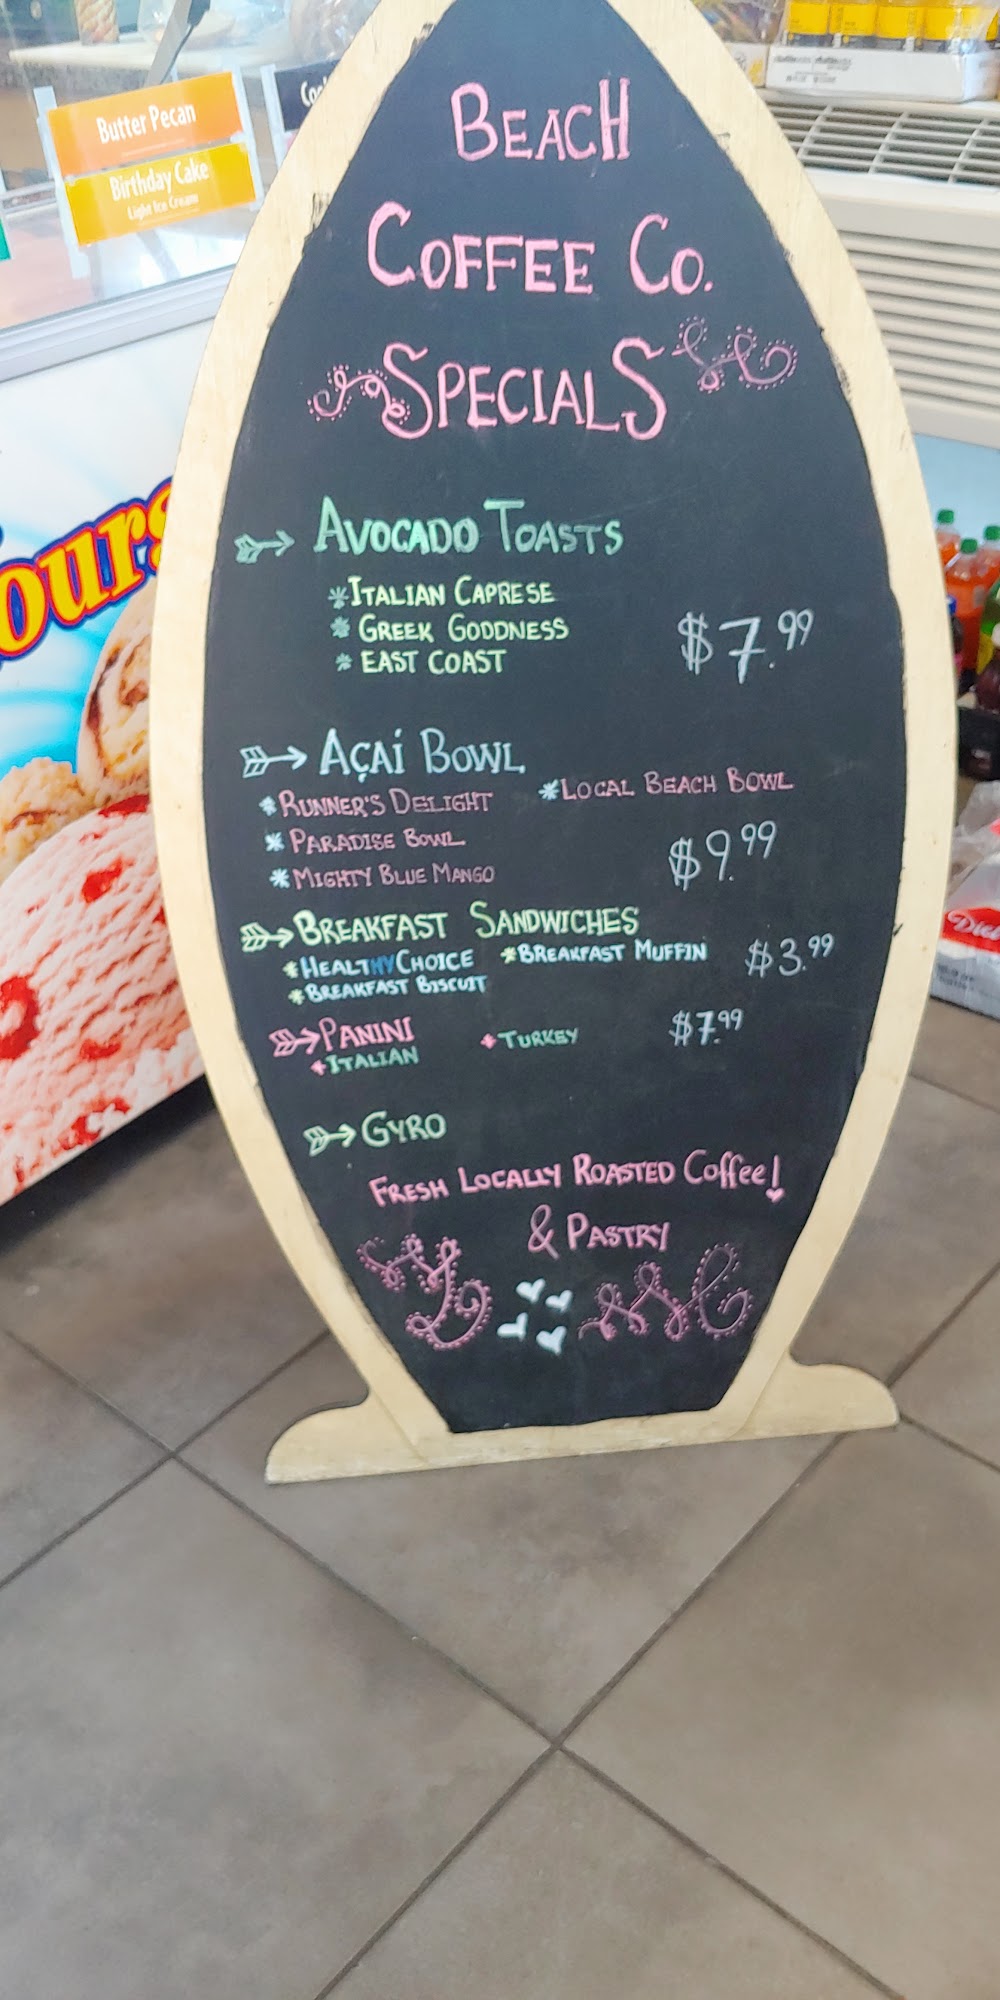 Butter Pecan
Birthday Cake
Light Ice Cream
BEACH
COFFEE CO.
SPECIALS
AVOCADO TOASTS
*ITALIAN CAPRESE
* GREEK GODDNESS
* EAST COAST
$7.99
AÇAÍ BOWL
*RUNNER'S DELIGHT *LOCAL BEACH BOWL
* PARADISE BOWL
*MIGHTY BLUE MANGO
$9.99
BREAKFAST SANDWICHES
*HEALTHY CHOICE *BREAKFAST MUFFIN $3.99
*BREAKFAST BISCUIT
PANINI
+ITALIAN +TURKEY $7.99
GYRO
FRESH LOCALLY ROASTED Coffee!
& PASTRY